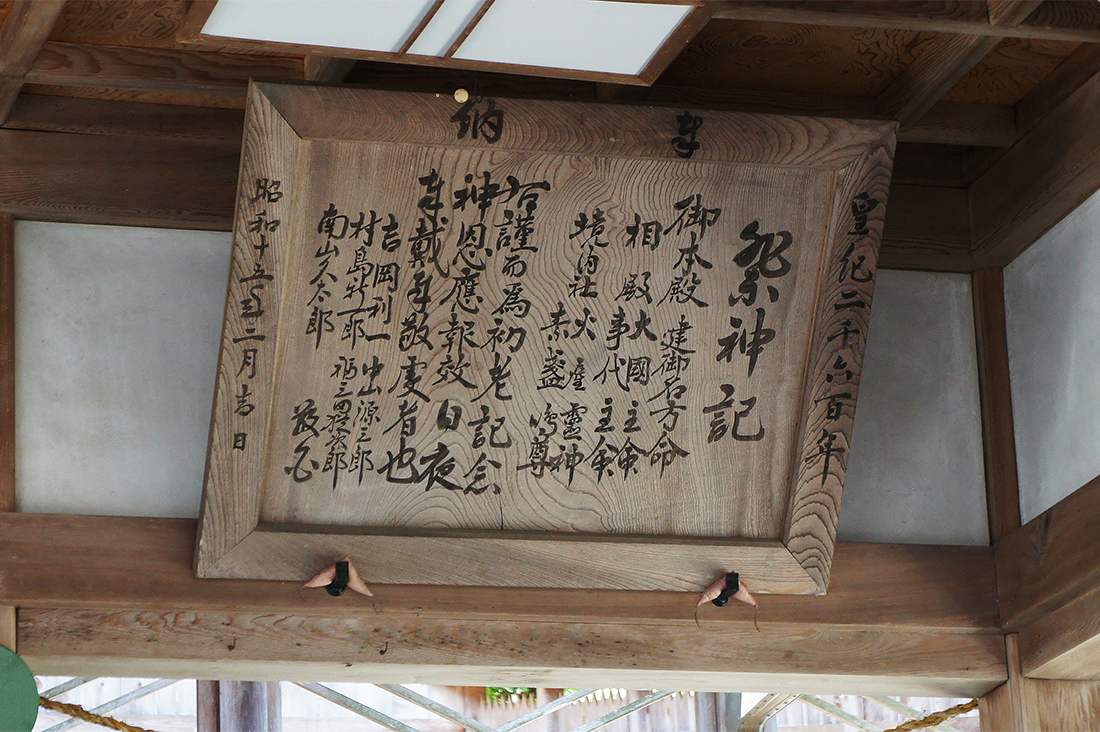 奉納
皇紀二千六百年
祭神記
御本殿 建御名方命
相殿 大國主命
事代主命
境内社 火産靈神
素盞嗚尊
右謹而為初老記念
神恩應報效日夜
奉戴年敬虔者也
吉岡利一 中山源三郎
村島新一郎 福三田猶次郎
南山久太郎
昭和十五年二月吉日